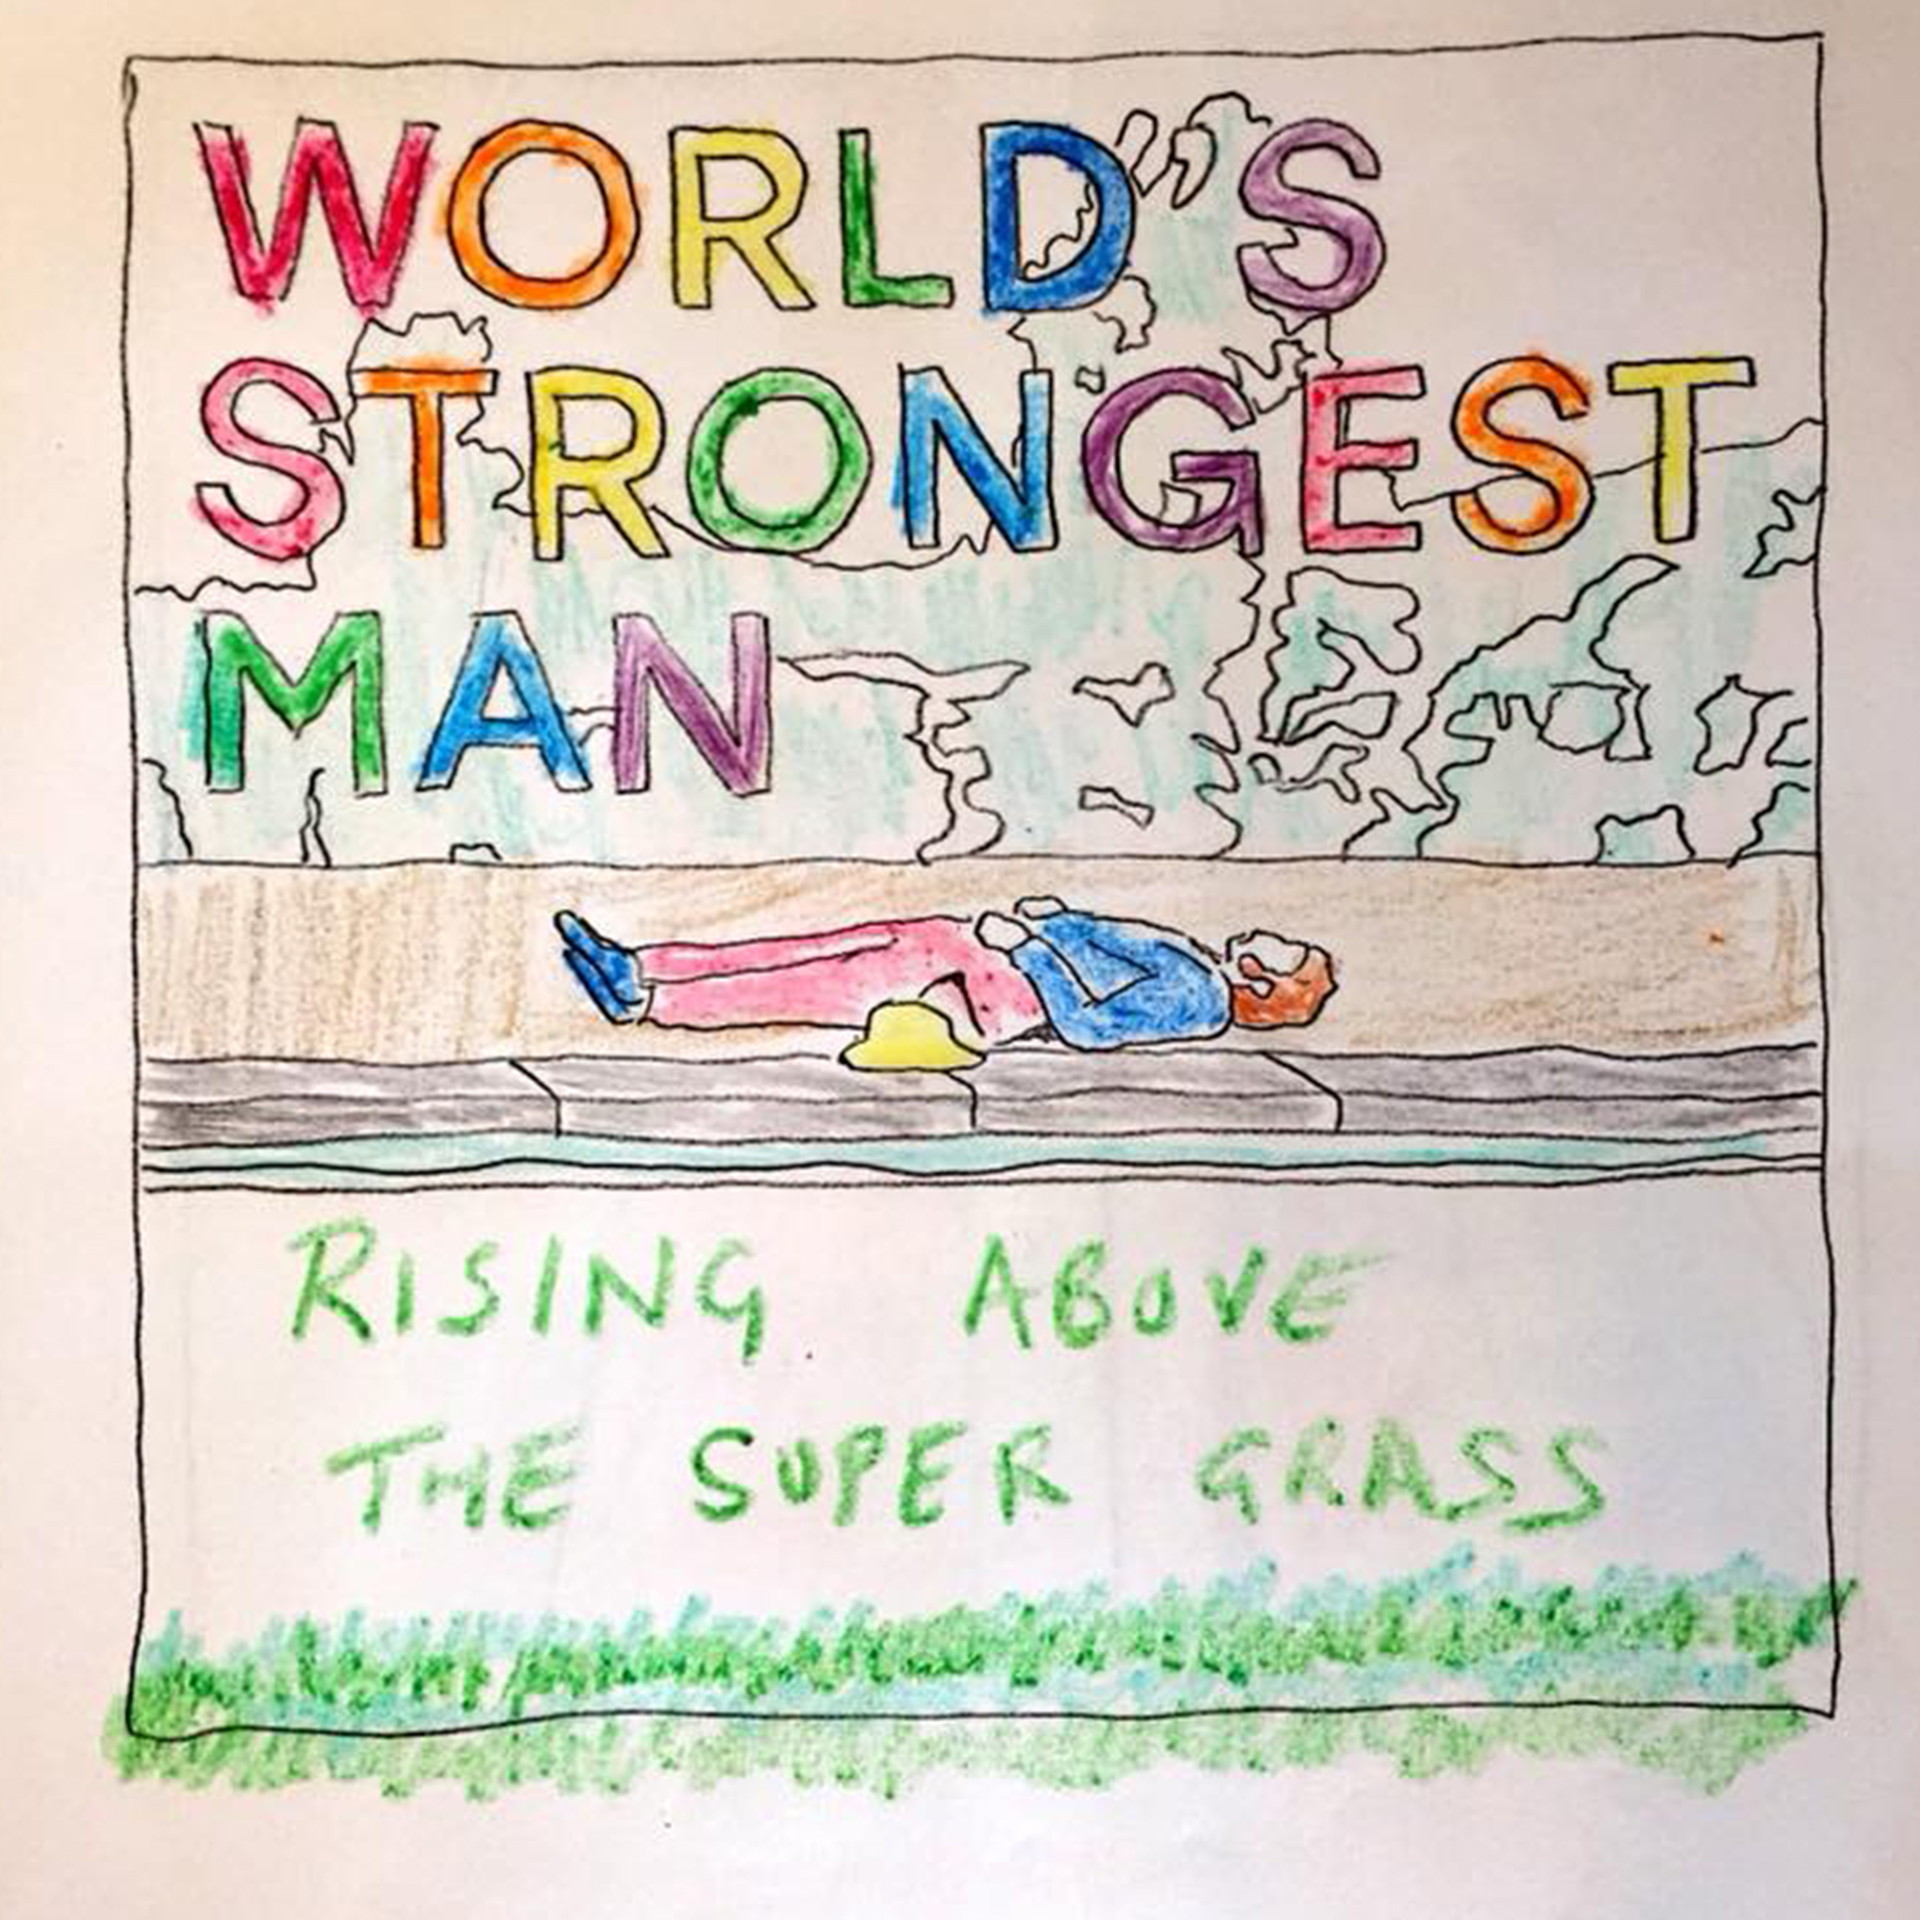 WORLD'S
STRONGEST
MAN
RISING ABOVE
THE SUPER GRASS